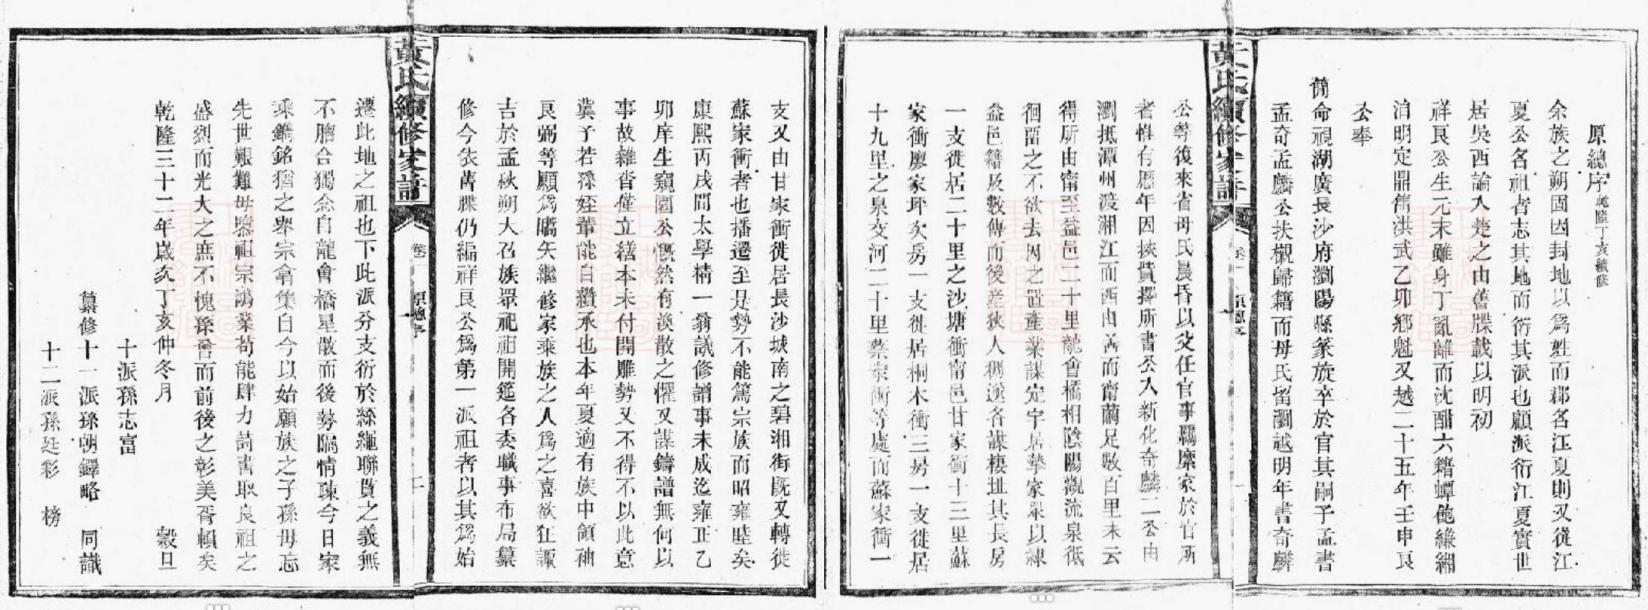 原總序 乾隆丁亥續修
余族之朔固因封地以為姓而郡名江夏則又從江
夏公名祖者志其地而衍其派也顧派衍江夏實世
居吳西論入楚之由舊牒載以明初
祥艮公生元末雖身丁亂離而沈酣六籍蟫佗綠緗
洎明定鼎舊洪武乙卯鄉魁又越二十五年壬申艮
公奉
簡命視湖廣長沙府瀏陽縣篆旋卒於官其嗣子孟書
孟奇孟麟公扶櫬歸籍而母氏留瀏越明年書奇麟
公等復來省母氏晨昏以父任官事羈縻家於官所
者惟有歷年因挾貲擇所書公入新化奇麟二公由
瀏抵潭州渡湘江而西由寗而甯繭足數百里未云
得所由甯至益邑二十里龍會橋相陰陽觀流泉低
徊畱之不欲去因之置產業謀定宇居摯家眾以隸
益邑籍及數傳而後差狄人稠遂各謀棲址其長房
一支徙居二十里之沙塘衝甯邑甘家衝十三里蘇
家衝廖家坪次房一支徙居桐木衝三房一支徙居
十九里之泉交河二十里蔡家衝等處而蘇家衝一
支又由甘家衝徙居長沙城南之碧湘街既又轉徙
蘇家衝者也播遷至是勢不能篤宗族而昭雍睦矣
康熙丙戌間太學精一翁議修譜事未成迄雍正乙
卯庠生窺園公慨然有渙散之懼又謀鑄譜無何以
事故雜沓僅立繕本未付開雕勢又不得不以此意
冀予若孫姪輩能自纘承也本年夏適有族中領袖
艮弼等願為嚆矢繼修家乘族之人為之喜欲狂諏
吉於孟秋朔大召族眾祀祖開筵各委職事布局纂
修今依舊牒仍編祥艮公為第一派祖者以其為始
遷此地之祖也下此派分支衍於絲繩聯貫之義無
不脗合獨念自龍會橋星散而後勢隔情疎今日家
乘鐫銘猶之舉宗會集自今以始願族之子孫毋忘
先世艱難毋隳祖宗鴻業苟能肆力詩書取艮祖之
盛烈而光大之庶不愧孫曾而前後之彰美胥賴矣
乾隆三十二年歲次丁亥仲冬月 穀旦
十派孫志富
纂修十一派孫朝鐸略 同識
十二派孫廷彩 榜
黃氏續修家譜
卷一
原總序
一
黃氏續修家譜
卷一
原總序
二